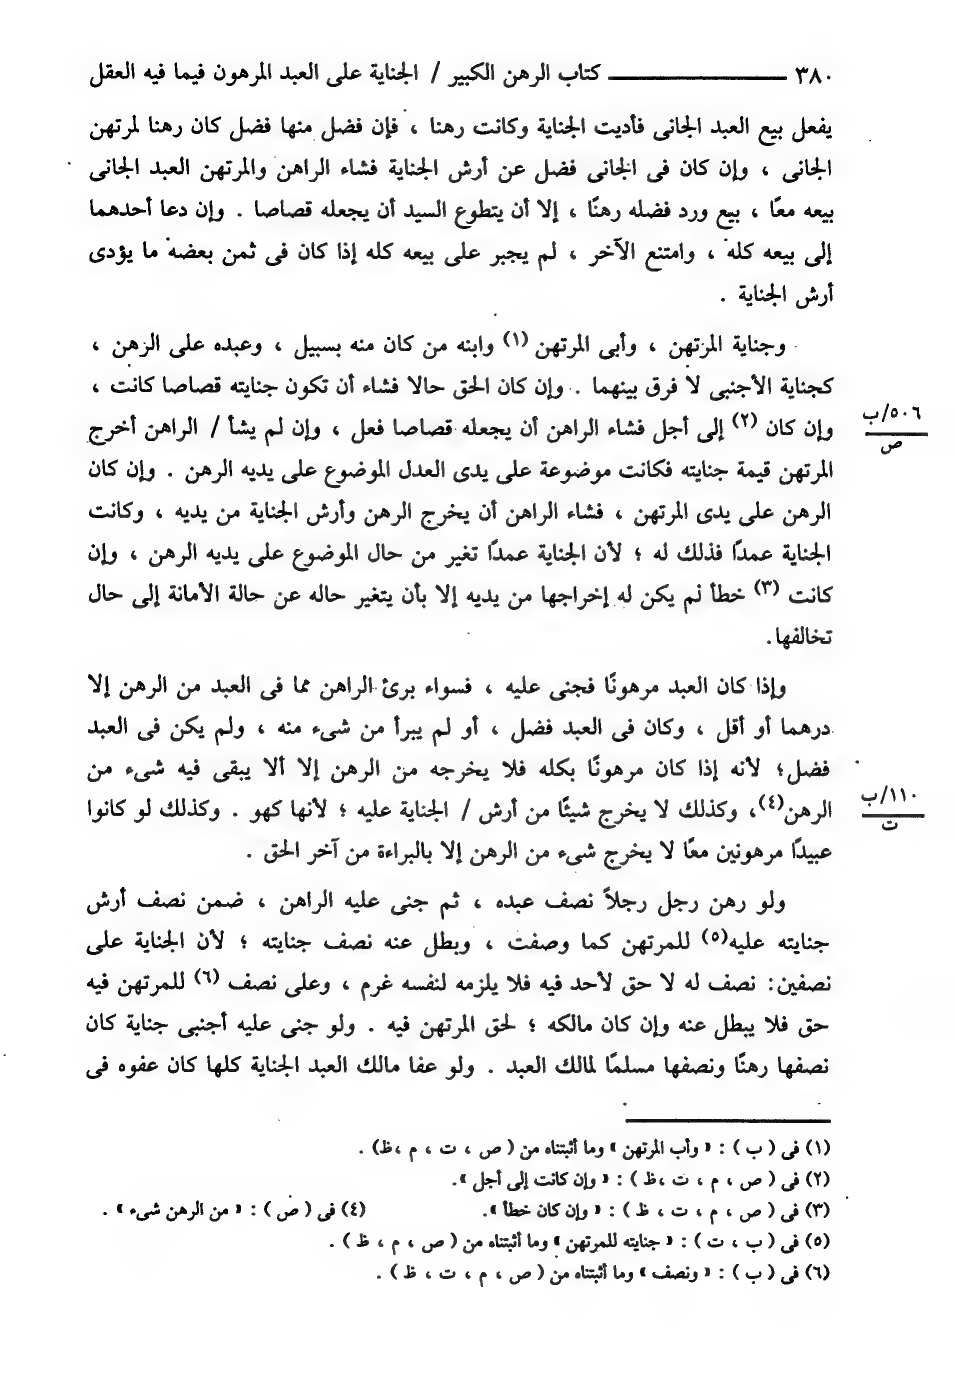 ٣٨٠ ــــــــــــ كتاب الرهن الكبير / الجناية على العبد المرهون فيما فيه العقل
يفعل بيع العبد الجانى فأديت الجناية وكانت رهنا ، فإن فضل منها فضل كان رهنا لمرتهن
الجانى ، وإن كان فى الجانى فضل عن أرش الجناية فشاء الراهن والمرتهن العبد الجانى
بيعه معًا ، بيع ورد فضله رهنًا ، إلا أن يتطوع السيد أن يجعله قصاصا . وإن دعا أحدهما
إلى بيعه كله ، وامتنع الآخر ، لم يجبر على بيعه كله إذا كان فى ثمن بعضه ما يؤدى
أرش الجناية .
وجناية المرتهن ، وأبى المرتهن (١) وابنه من كان منه بسبيل ، وعبده على الرهن ،
كجناية الأجنبى لا فرق بينهما . وإن كان الحق حالا فشاء أن تكون جنايته قصاصا كانت ،
وإن كان (٢) إلى أجل فشاء الراهن أن يجعله قصاصا فعل ، وإن لم يشأ / الراهن أخرج
٥٠٦/ب
ص
المرتهن قيمة جنايته فكانت موضوعة على يدى العدل الموضوع على يديه الرهن . وإن كان
الرهن على يدى المرتهن ، فشاء الراهن أن يخرج الرهن وأرش الجناية من يديه ، وكانت
الجناية عمدًا فذلك له ؛ لأن الجناية عمدًا تغير من حال الموضوع على يديه الرهن ، وإن
كانت (٣) خطأ لم يكن له إخراجها من يديه إلا بأن يتغير حاله عن حالة الأمانة إلى حال
تخالفها.
وإذا كان العبد مرهونًا فجنى عليه ، فسواء برئ الراهن مما فى العبد من الرهن إلا
درهما أو أقل ، وكان فى العبد فضل ، أو لم يبرأ من شىء منه ، ولم يكن فى العبد
فضل؛ لأنه إذا كان مرهونًا بكله فلا يخرجه من الرهن إلا ألا يبقى فيه شىء من
الرهن(٤)، وكذلك لا يخرج شيئًا من أرش / الجناية عليه ؛ لأنها كهو . وكذلك لو كانوا
١١٠/ب
ت
عبيدًا مرهونين معًا لا يخرج شىء من الرهن إلا بالبراءة من آخر الحق .
ولو رهن رجل رجلاً نصف عبده ، ثم جنى عليه الراهن ، ضمن نصف أرش
جنايته عليه(٥) للمرتهن كما وصفت ، وبطل عنه نصف جنايته ؛ لأن الجناية على
نصفين: نصف له لا حق لأحد فيه فلا يلزمه لنفسه غرم ، وعلى نصف (٦) للمرتهن فيه
حق فلا يبطل عنه وإن كان مالكه ؛ لحق المرتهن فيه . ولو جنى عليه أجنبى جناية كان
نصفها رهنًا ونصفها مسلمًا لمالك العبد . ولو عفا مالك العبد الجناية كلها كان عفوه فى
(١) فى ( ب ) : « وأب المرتهن » وما أثبتناه من ( ص ، ت ، م ،ظ) .
(٢) فى ( ص ، م ، ت ،ظ ) : « وإن كانت إلى أجل ».
(٣) فى ( ص ، م ، ت ، ظ ) : « وإن كان خطأ ». (٤) فى ( ص ) : « من الرهن شىء » .
(٥) فى ( ب ، ت ) : « جنايته للمرتهن » وما أثبتناه من ( ص ، م ، ظ ) .
(٦) فى ( ب ) : « ونصف » وما أثبتناه من ( ص ، م ، ت ، ظ ) .